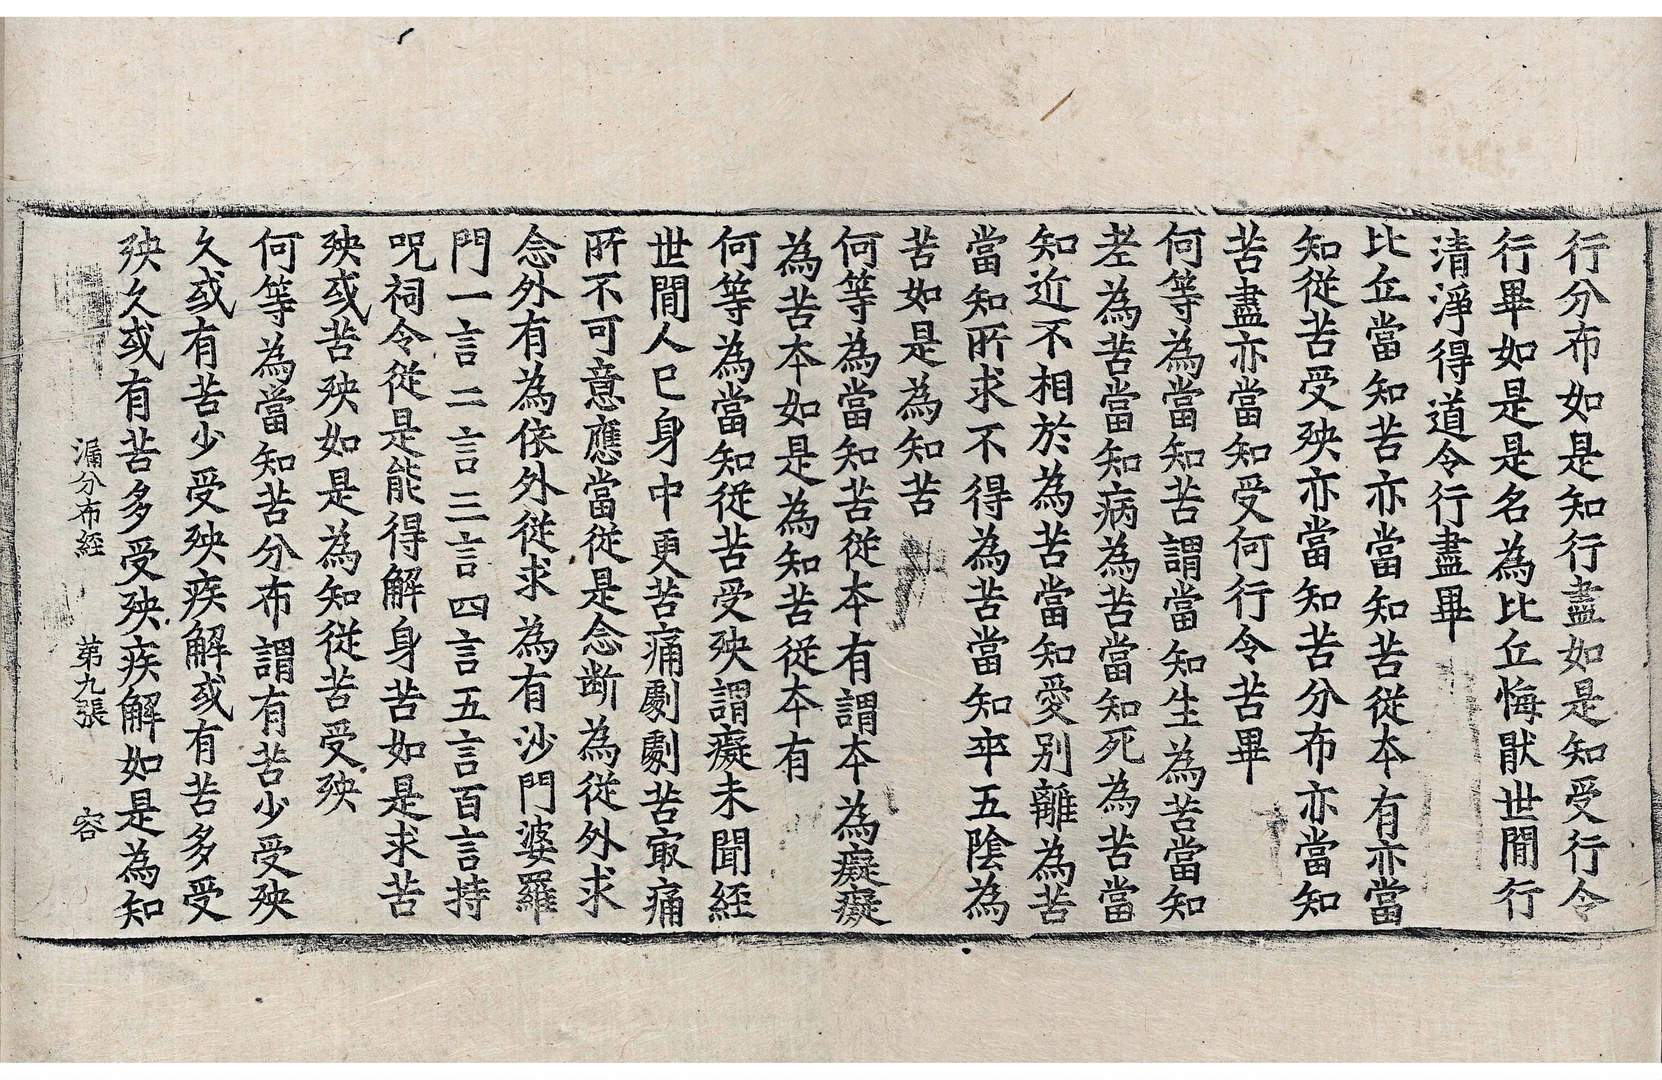 行分布如是知行盡如是知受行令
行畢如是是名為比丘悔猒世閒行
清淨得道令行盡畢
比丘當知苦亦當知苦從本有亦當
知從苦受殃亦當知苦分布亦當知
苦盡亦當知受何行令苦畢
何等為當知苦謂當知生為苦當知
老為苦當知病為苦當知死為苦當
知近不相於為苦當知愛別離為苦
當知所求不得為苦當知卒五陰為
苦如是為知苦
何等為當知苦從本有謂本為癡癡
為苦本如是為知苦從本有
何等為當知從苦受殃謂癡未聞經
世閒人已身中更苦痛劇劇苦㝡痛
所不可意應當從是念断為從外求
念外有為依外從求為有沙門婆羅
門一言二言三言四言五言百言持
呪祠令從是能得解身苦如是求苦
殃或苦殃如是為知從苦受殃
何等為當知苦分布謂有苦少受殃
久或有苦少受殃疾解或有苦多受
殃久或有苦多受殃疾解如是為知
漏分布経 第九張 容